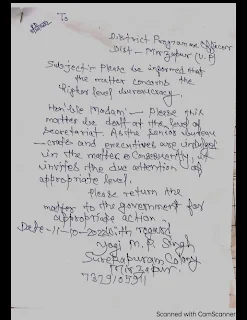 To
District Programme Officer
Dist - Mirzapur (U.P)
Subject:- Please be informed that
the matter concerns the
higher level bureaucracy.
Hon'ble Madam:- Please this
matter be dealt at the level of
secretariat. As the senior bureau
-crats and executives are involved
in the matter so consequently, it
invites the due attention of
appropriate level.
Please return the
matter to the government for
appropriate action.
Date-11-10-202 With regard
Yogi M. P. Singh
Surekapuram Colony
Mirzapur
7379105911
Scanned with CamScanner